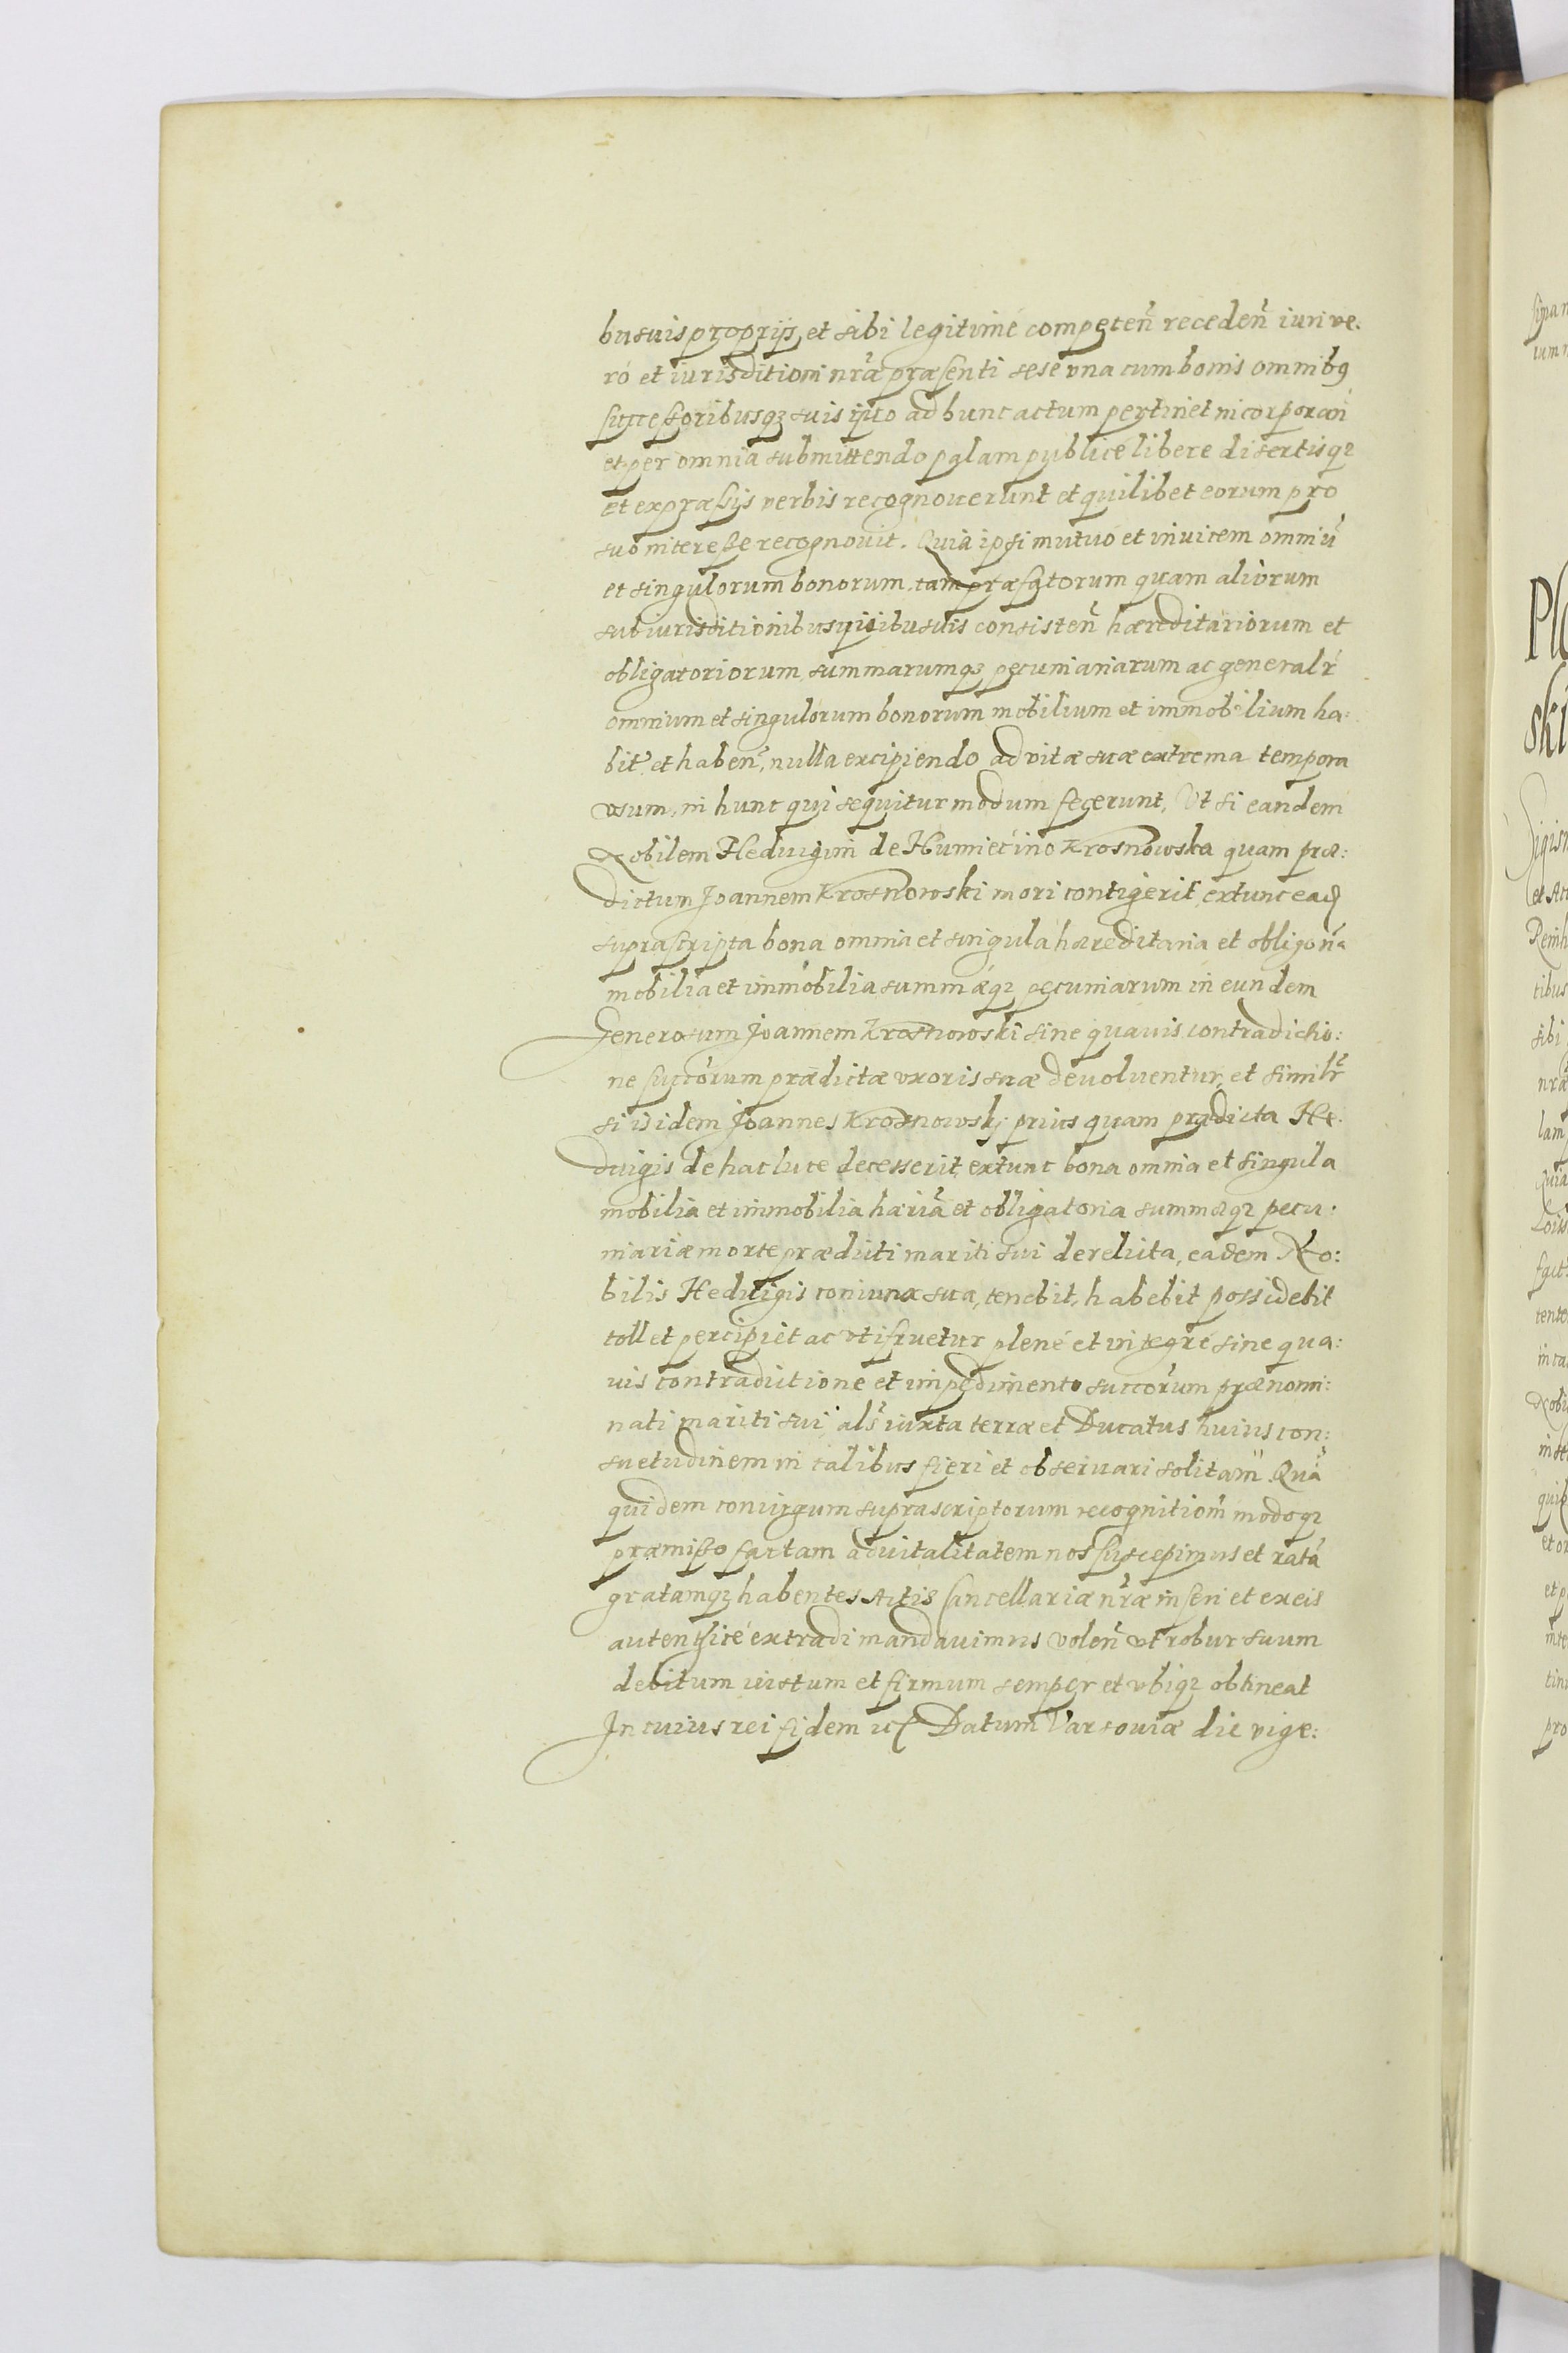 bu suis proprijs et sibi legitimé competen̄ receden̄ iuri ve:
ro et iurisditioni nr̄æ præsenti sese vna cum bonis omnibq
successoribusqʒ suis quo ad hunc actum pertinet incorporan̄
et per omnia submittendo palam publicé libere disertisqʒ
et expræssis verbis recognouerunt et quilibet eorum pro
suo interesse recognouit. Quia ipsi mutuó et inuicem omniū
et singulorum bonorum tam præfatorum quam aliorum
sub iurisditionibus quibusuis consisten̄ hæreditariorum et
obligatoriorum, summarumqʒ pecuniariarum ac generalr̄
omnium et singulorum bonorum mobilium et immobilium ha:
bit̄ et haben̄, nulla excipiendo ad vitæ suæ extrema tempora
vsum, in hunc qui sequitur modum fecerunt, Vt si eandem
Nobilem Heduigim de Humiećino Krosnowska quam præ:
dictum Joannem Krosnowski mori contigerit, extunc ead
suprascripta bona omnia et singula hæreditaria et obligon̄a
mobilia et immobilia summæqʒ pecuniarum in eundem
Generosum Joannem Krosnowski sine quauis contradictio:
ne succorum prædictæ vxoris suæ deuoluentur, et similr̄
si is idem Joannes Krosnowskj prius quam prædicta He:
duigis de hac luce decesserit, extunc bona omnia et singula
mobilia et immobilia hæriā et obligatoria summæqʒ pecu:
niariæ morte prædicti mariti sui derelicta, eadem No:
bilis Heduigis coniunx sua, tenebit, habebit possidebit
toll et percipiet ac vtifruetur plené et integré sine qua:
uis contradictione et impedimento succorum prænomi:
nati mariti sui, als̄ iuxta terræ et Ducatus huius con:
suetudinem in talibus fieri et obseruari solitam. Quā
quidem coniugum suprascriptorum recognitiom̄ modoqʒ
præmisso factam aduitalitatem nos suscepimus et ratā
gratamqʒ habentes Actis Cancellariæ nr̄æ inseri et ex eis
autenticé extradi mandauimus volen̄ vt robur suum
debitum iustum et firmum semper et vbiqʒ obtineat
In cuius rei fidem ꝛc Datum Varsouiæ die vige: